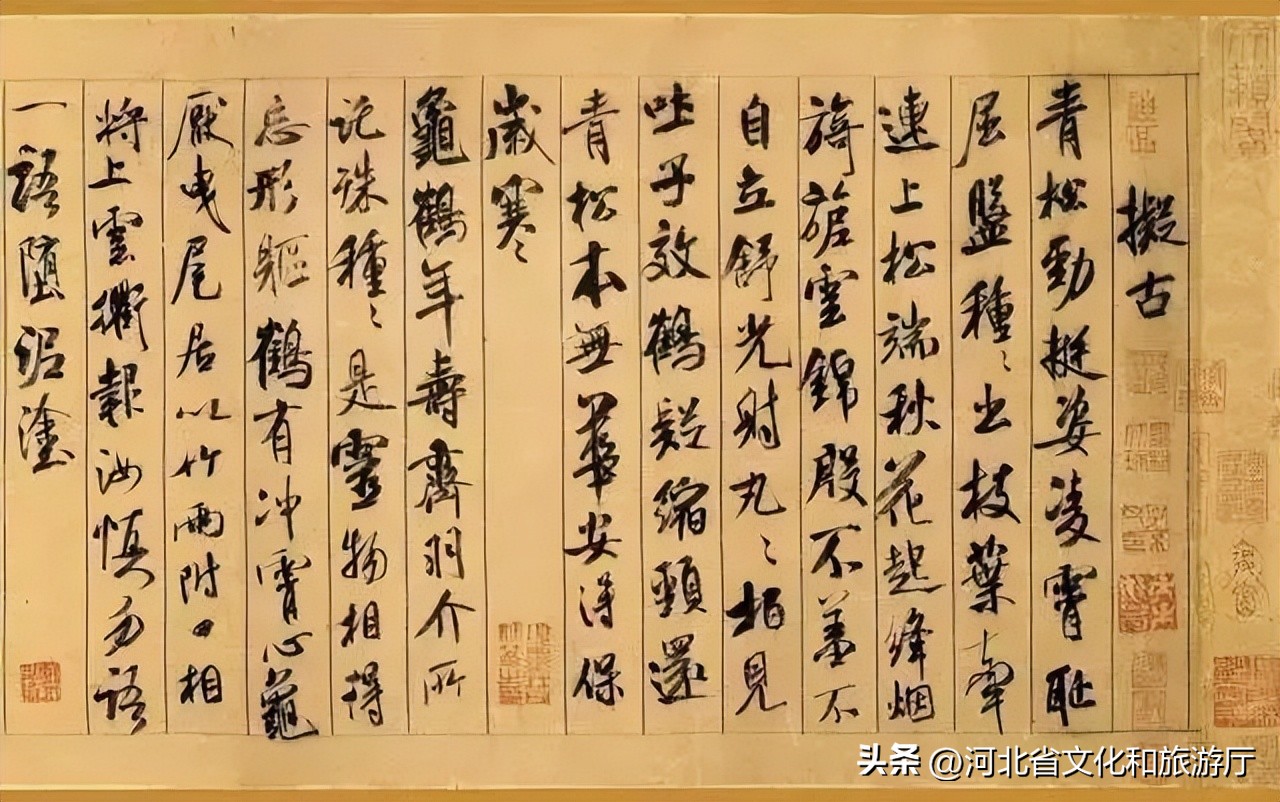 擬古
青松勁挺姿凌霄恥
屈盤種〻出枝葉牽
連上松端秋花起絳烟
旖旎雲錦殷不羞不
自立舒光射丸〻柏見
吐子效鶴疑縮頸還
青松本無華安得保
歲寒〻
龜鶴年壽齊羽介所
託殊種〻是靈物相得
忘形軀鶴有沖霄心龜
厭曳尾居以竹兩附口相
將上雲衢報汝慎勿語
一語墮泥塗
头条 @河北省文化和旅游厅